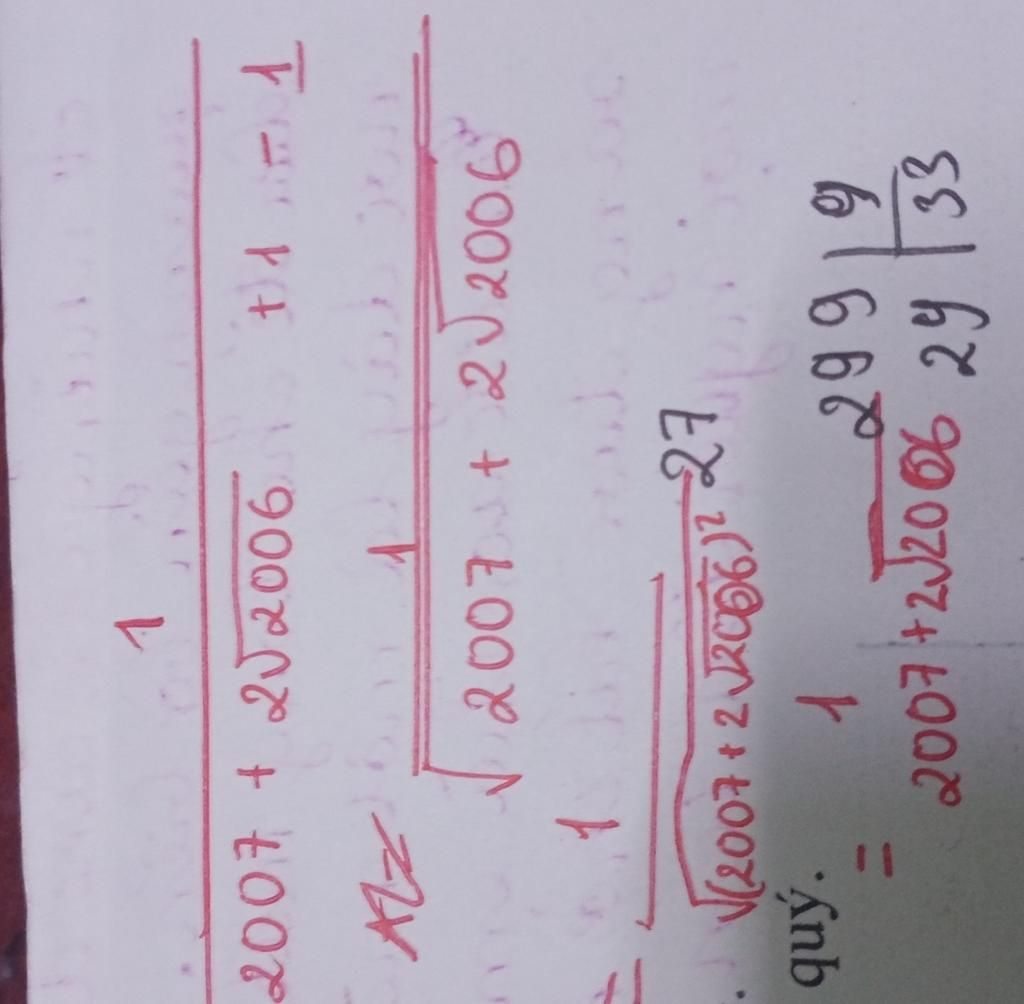 1
2007 + 2√2006 + 1 - 1
1
√2007 + 2√2006
1
√(2007 + 2√2006)² 27
quý. 1 299 | 9
= 2007 + 2√2006 29 | 33